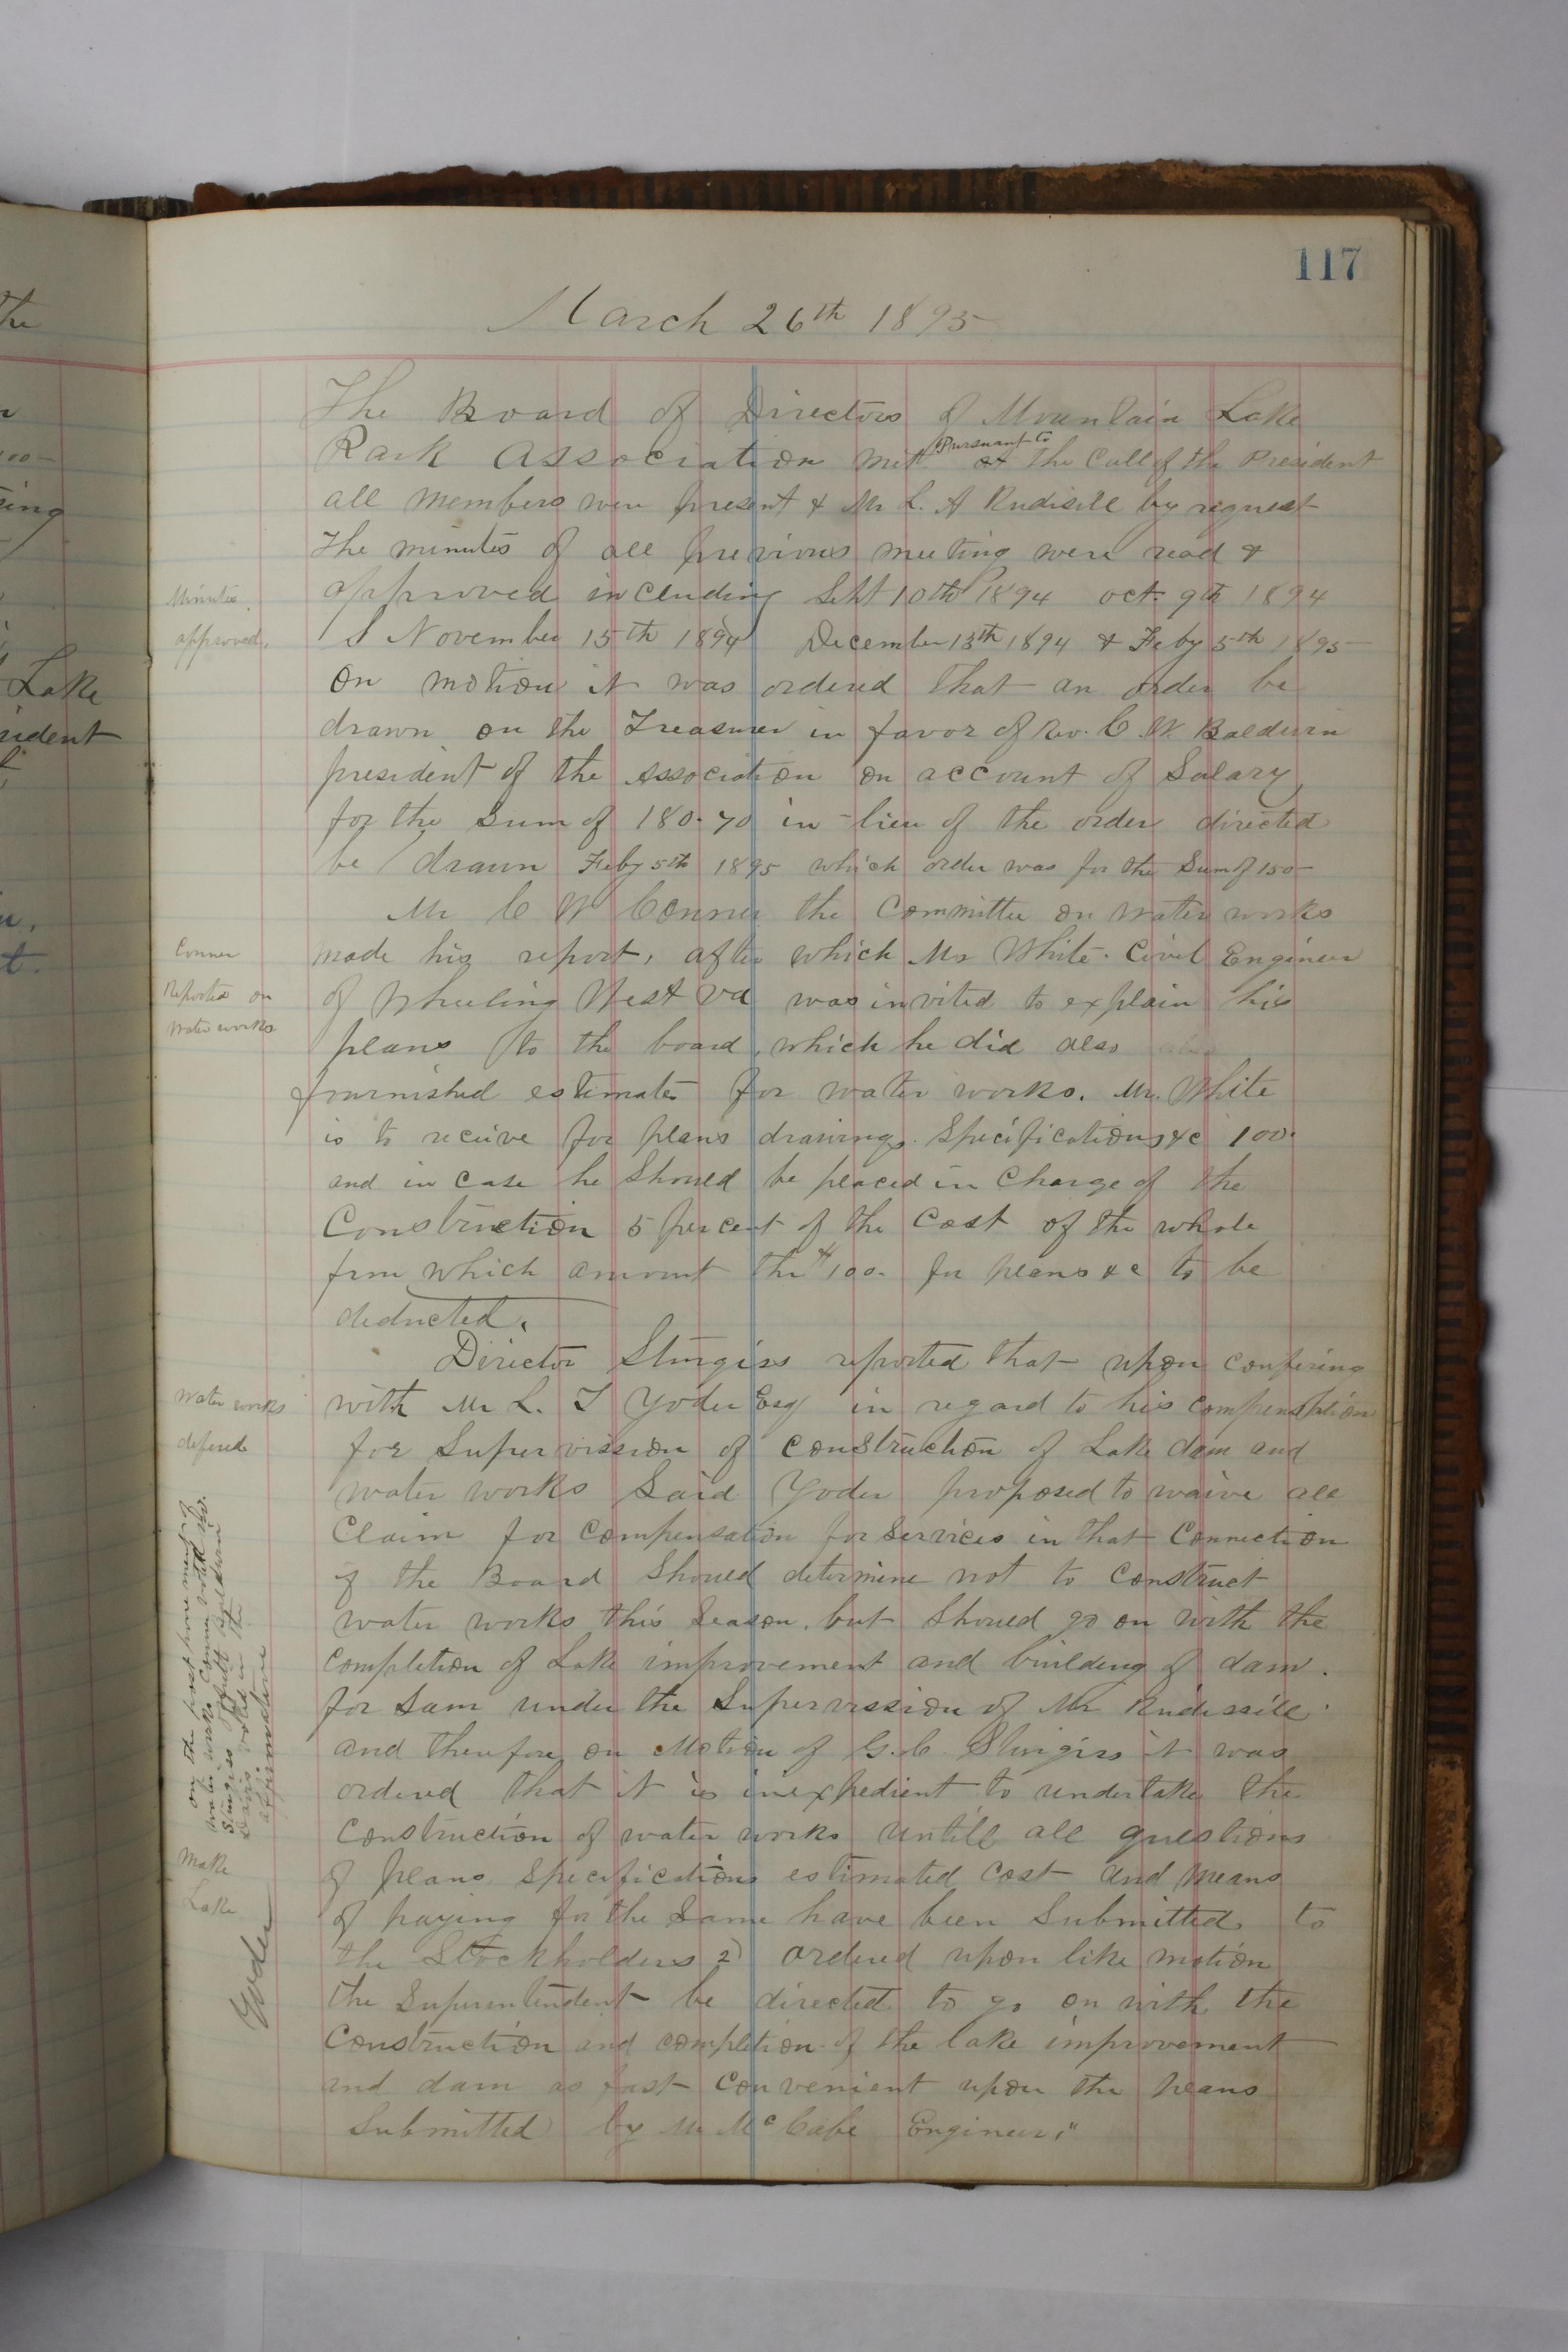 117
March 26th 1895
The Board of Directors of Mountain Lake
Park Association met Pursuant to at the Call of the President
all members were present & Mr L. A Rudisill by request
The minutes of all previous meeting were read &
approved including Sept 10th 1894 oct. 9th 1894
Minutes
approved.
November 15th 1894 December 13th 1894 & Feby 5th 1895
on motion it was ordered that an order be
drawn on the Treasurer in favor of Rev. C. W. Baldwin
president of the Association on account of Salary
for the Sum of 180.70 in lieu of the order directed
be drawn Feby 5th 1895 which order was for the Sum of 150
Mr C W Conner the Committee on water works
Conner
Reported on
water works
made his report, after which Mr White. Civil Engineer
of Wheeling West Va was invited to explain his
plans to the board, which he did also
fournished estimates for water works. Mr. White
is to receive for plans drawings. Specifications &c 100.
and in case he Should be placed in Charge of the
Construction 5 per cent of the Cost of the whole
from which amount the $100. for plans &c to be
deducted.
Director Sturgiss reported that upon confering
water works
defered
with Mr L. T Yoder Esq in regard to his compensation
for Supervission of construction of Lake dam and
water works Said Yoder proposed to waive all
Claim for Compensation for Services in that Connection
if the Board Should determine not to Construct
water works this Season. but Should go on with the
Completion of Lake improvement and building of dam.
for Sam under the Supervission of Mr Rudissill.
and therefore on Motion of G. C. Sturgiss it was
ordered that it is inexpedient to undertake the
Construction of water works untill all questions
of plans Specifications estimated Cost and Means
of paying for the Same have been Submitted to
the Stockholders 2) ordered upon like motion
the Superintendent be directed to go on with the
Construction and completion of the lake improvement
and dam as fast convenient upon the plans
Submitted by Mr McCabe Engineer,"
on the post pone ment of
water works Conner voted No.
Sturgiss Baldwin
Davis voted in the
afirmative
Make
Lake
Yoder
The
Lake